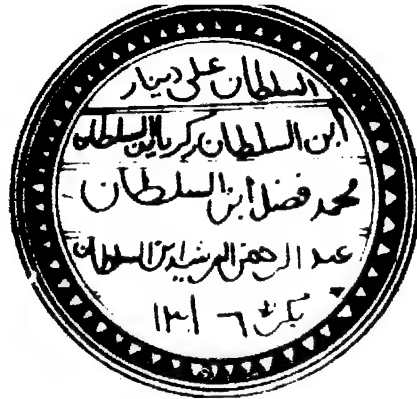 السلطان على دينار
ابن السلطان زكريا بن السلطان
محمد فضل ابن السلطان
عبد الرحمن الرشيد ابن السلطان
١٣١٦